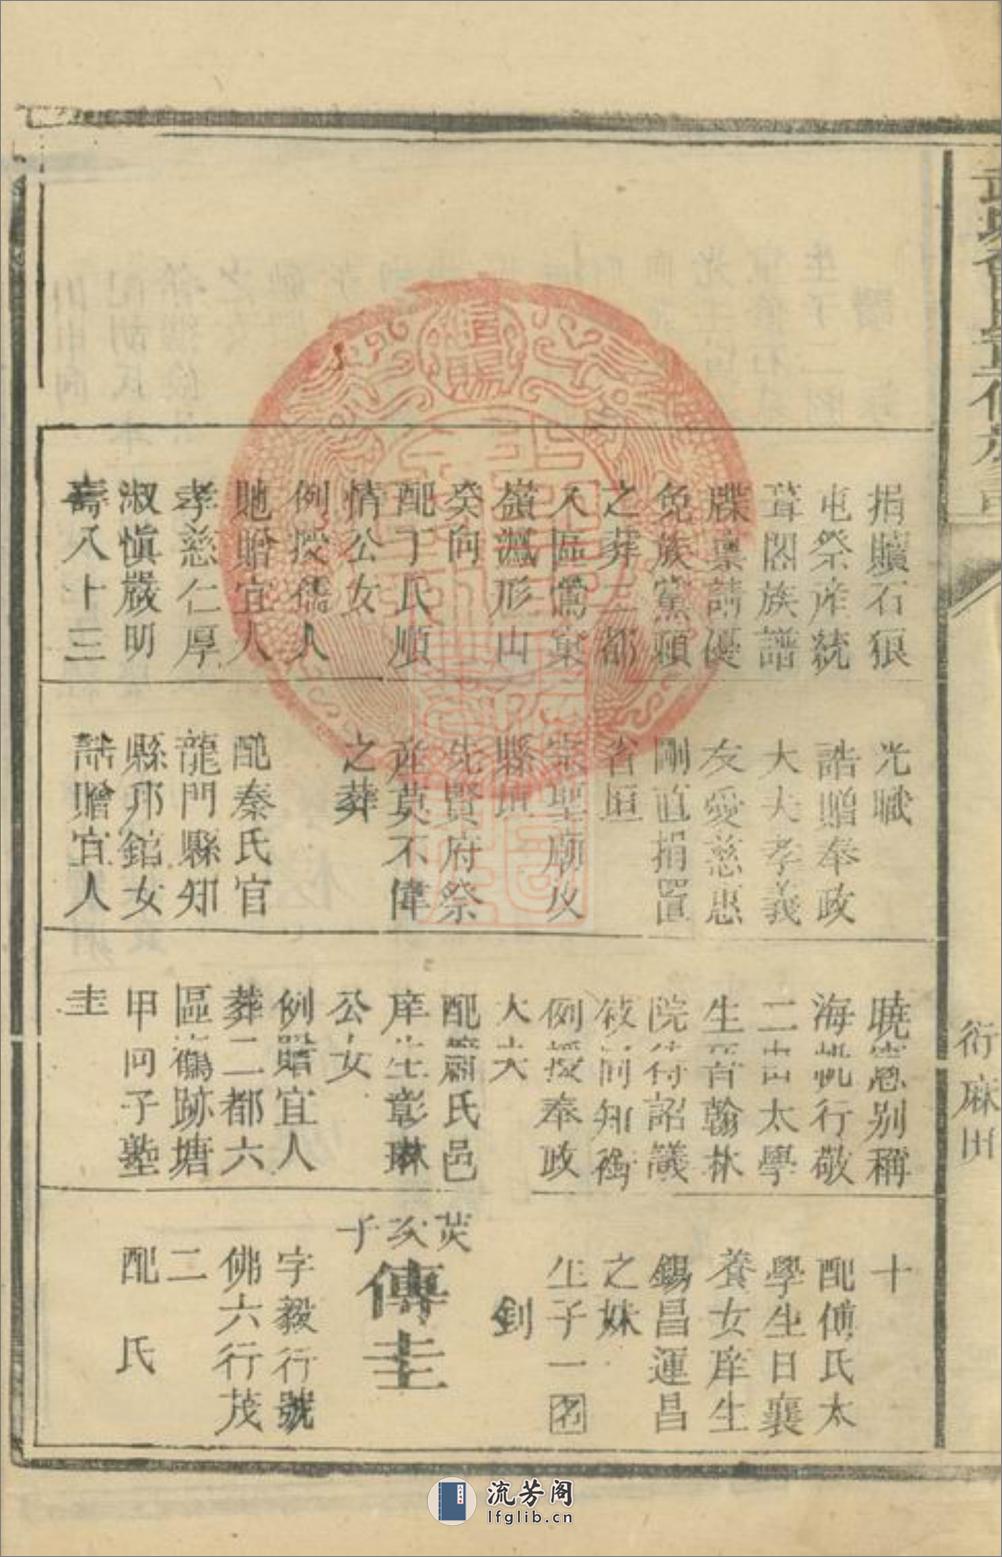 捐贖石狼
屯祭産統
葺閣族譜
牒稟請優
免族黨頼
之葬二都
八區鶯窠
嶺瓢形山
癸向
配丁氏順
情公女
例授儒人
貤贈宜人
孝慈仁厚
淑愼嚴明
壽八十三
光職
誥贈奉政
大夫孝義
友愛慈惠
剛直捐置
省垣
宗聖廟及
縣垣
先賢府祭
産莫不偉
之葬
配秦氏官
龍門縣知
縣邦錧女
誥贈宜人
曉窻别稱
海帆行敬
二由太學
生
院待詔議
敘同知銜
例授奉政
大夫
配蕭氏邑
庠生彰琳
公女
例贈宜人
葬二都六
區鶴跡塘
甲向子塾
圭
十
配傅氏太
學生日襄
養女庠生
錫昌運昌
之妹
生子一名
釗
次子
傳圭
字毅行號
佛六行茂
二
配 氏
衍麻田
流芳阁
lfglib.cn